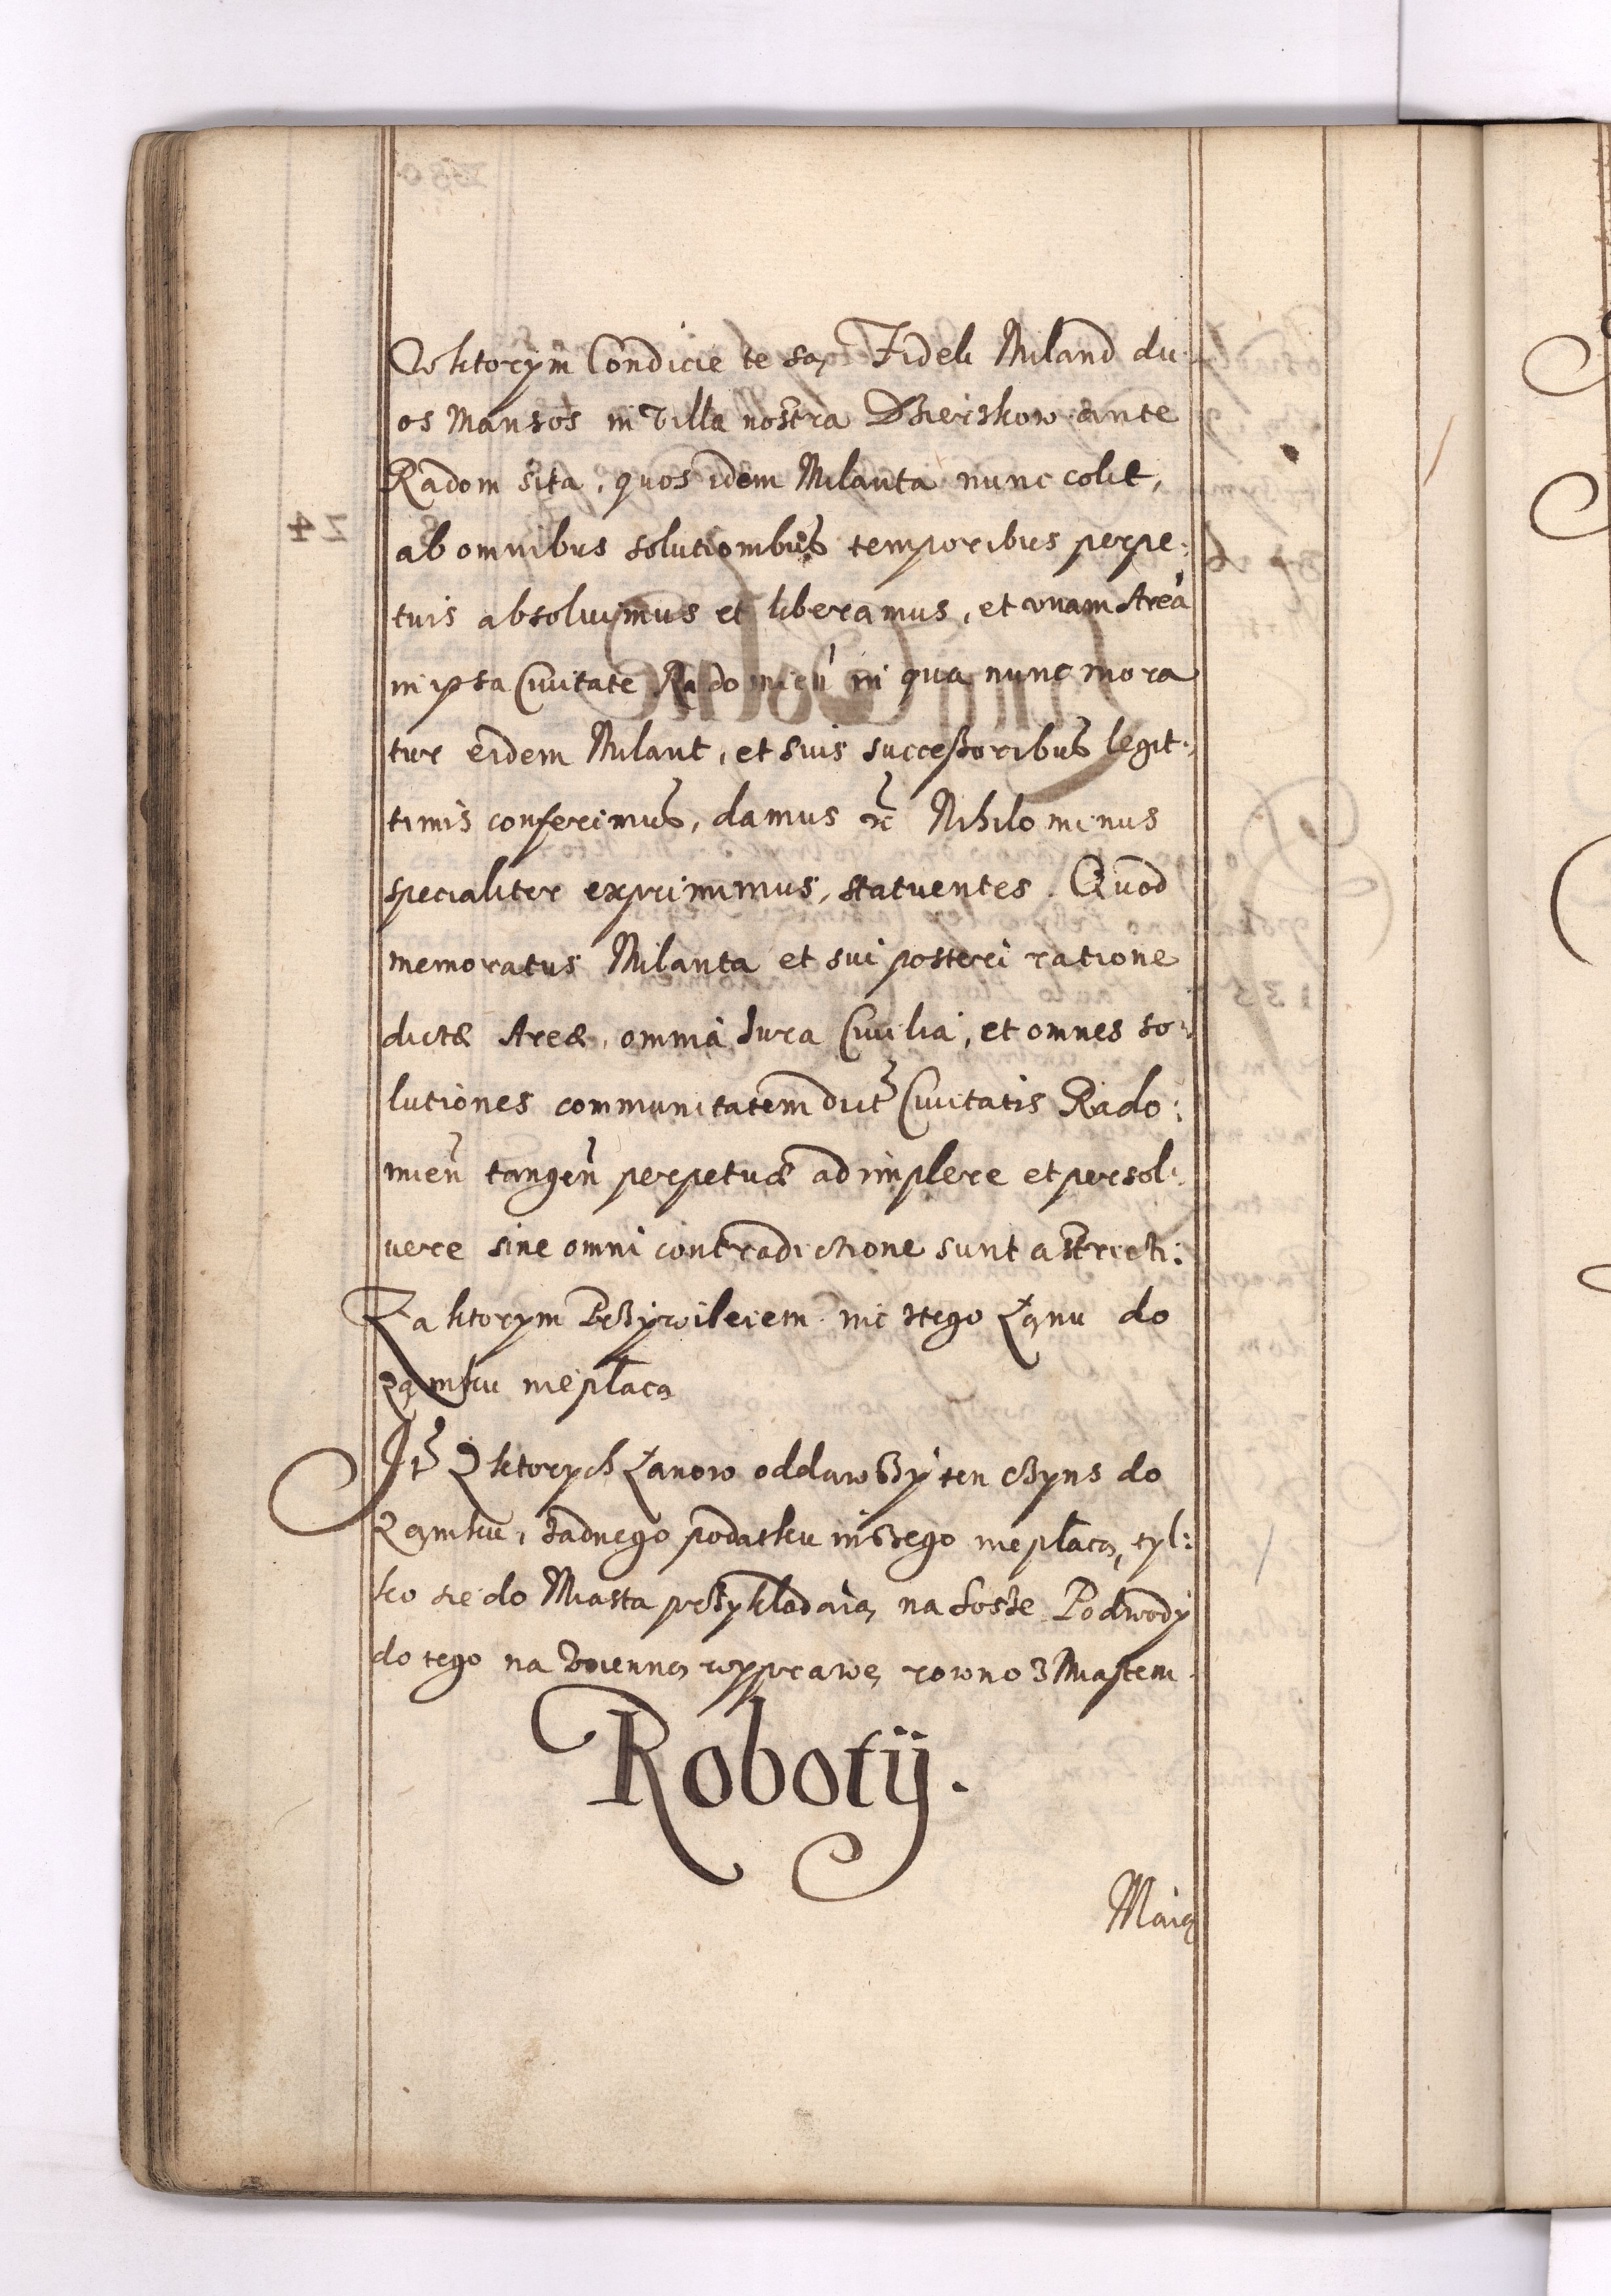 W ktorym Condicie te są, Fideli Miland du
os Mansos in Villa nostra Dzierzkow ante
Radom sita, quos idem Milanta nunc colit,
ab omnibus solutionibus temporibus perpe:
tuis absoluimus et liberamus, et unam Areā
in ipsa Ciuitate Radomien̄ in qua nunc mora
tur eidem Milant, et suis successoribus legit:
timis conferimus, damus etc Nihilominus
specialiter exprimimus, statuentes. Quod
memoratus Milanta et sui posteri ratione
dictæ Areæ, omnia Iura Ciuilia, et omnes so:
lutiones communitatem dict Ciuitatis Rado:
mien̄ tangen̄ perpetuæ adimplere et persol:
uere sine omni contradictione sunt astricti:
Za ktorym Przywileiem nic ztego Łanu do
Zamku niepłacą
It Z ktorych Łanow oddawszy ten czyns do
Zamku, żadnego podatku inszego niepłacą, tyl:
ko sie do Miasta przykładaią, na Szosze Podwody
do tego na woienną wyprawę rowno z Miastem
Robotÿ.
Maią